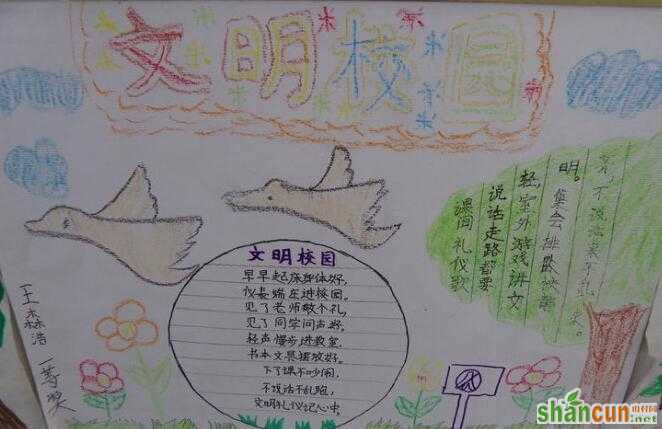 文明校园
文明校园
早早起床身体好,
仪表端庄进校园。
见了老师敬个礼,
见了同学问声好。
轻声慢步进教室,
书本文具摆放好。
下了课不吵闹,
不说话不乱跑,
文明礼仪记心中。
课间礼仪歌
说话走路都要
轻,室外游戏讲文
明。集会排队
亮,不说话来不乱
来。
王森浩
一等奖
shancun
山村网
.net